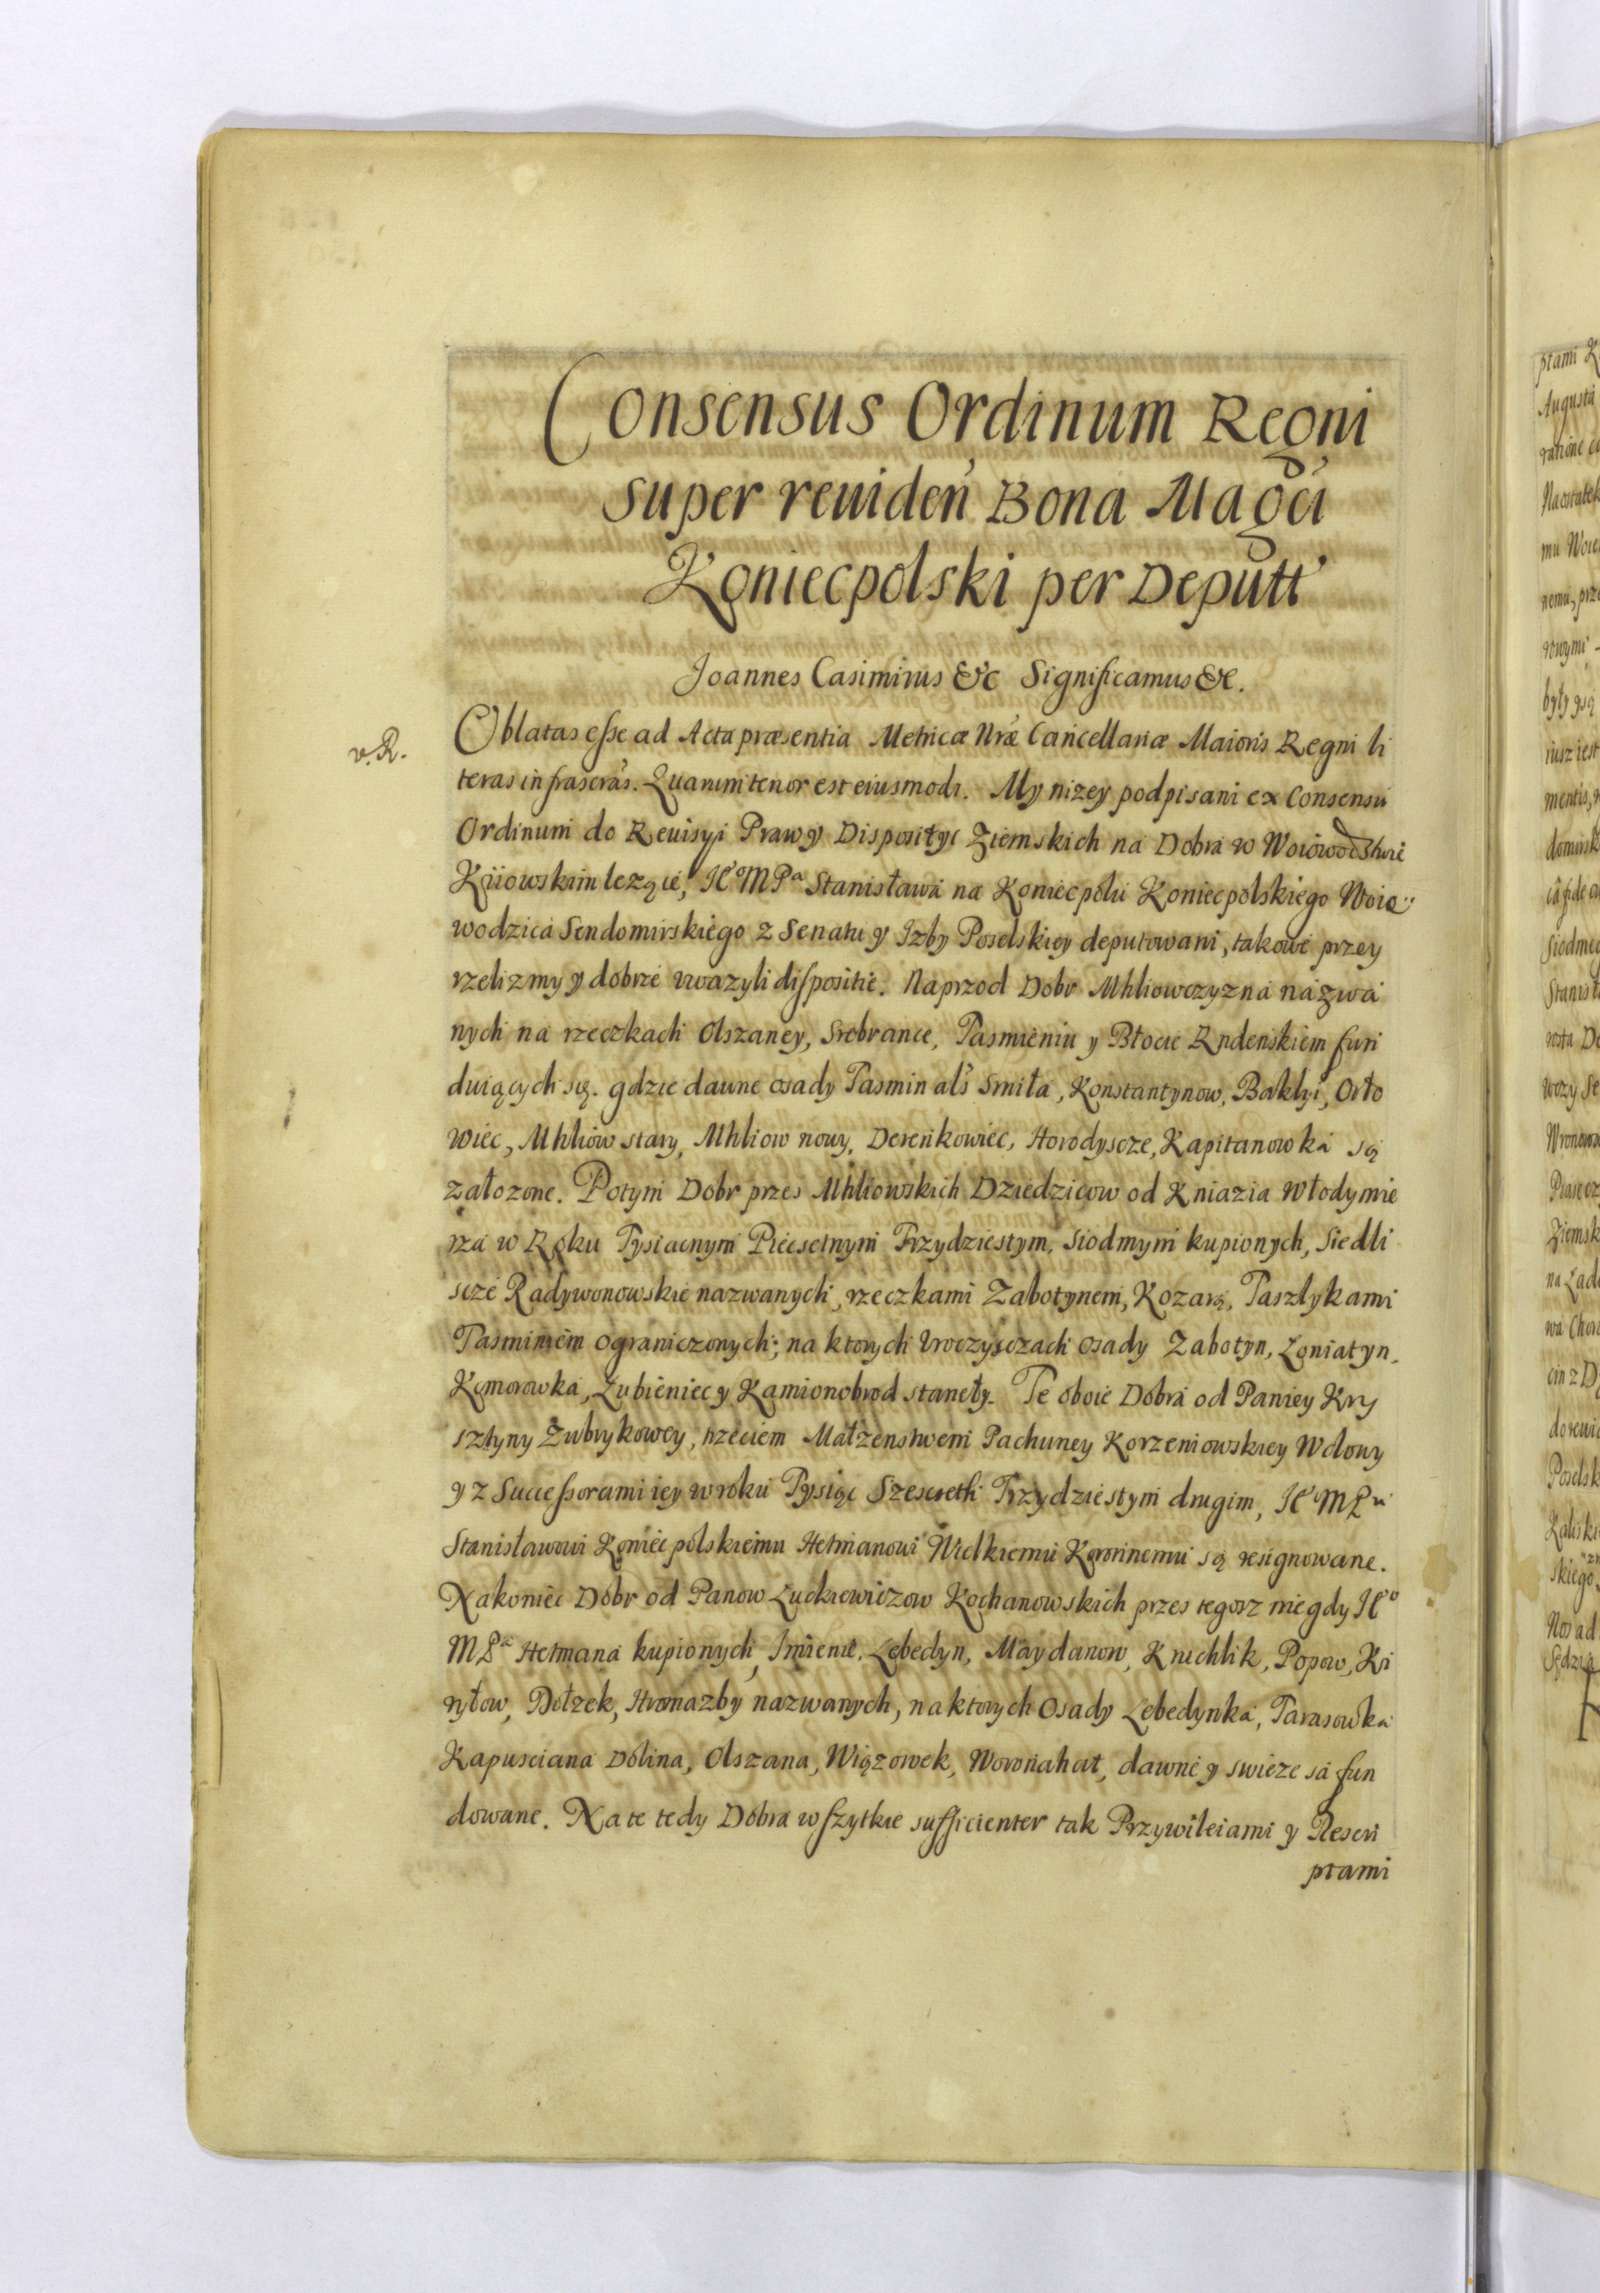 Consensus Ordinum Regni
super reuiden Bona Magci
Koniecpolski per Deputt
Joannes Casimirus &c Significamus &c.
v. R.
Oblatas esse ad Acta præsentia Metricæ Nræ Cancellariæ Maioris Regni li
teras infrascras. Quarum tenor est eiusmodi. My nizey podpisani ex Consensu
Ordinum do Reuisyi Praw y Disposityi Ziemskich na Dobra w Woiowodztwie
Kiiowskim lezące, Jeo MPa Stanisława na Koniecpolu Koniecpolskiego Woie
wodzica Sendomirskiego z Senatu y Izby Poselskiey deputowani, takowe przey
rzelizmy y dobrze uwazyli dispositie. Naprzod Dobr Mhliowczyzna nazwa
nych na rzeczkach Olszaney, Srebrance, Tasmieniu y Błocie Rudenskiem fun
duiących się. gdzie dawne osady Tasmin als Smiła, Konstantynow, Baklyi, Orło
wiec, Mhliow stary, Mhliow nowy, Derenkowiec, Horodyscze, Kapitanowka są
załozone. Potym Dobr przes Mhliowskich Dziedzicow od Kniazia Włodymie
rza w Roku Tysiacnym Piecsetnym Trzydziestym, siodmym kupionych, Siedli
scze Radywonowskie nazwanych, rzeczkami Zabotynem, Kozarą, Taszlykami
Tasminiem ograniczonych; na ktorych Uroczysczach osady Zabotyn, Loniatyn,
Komorowka, Lubieniec y Kamionobrod stanęły. Te oboie Dobra od Paniey Kry
sztyny Zubrykowey, trzeciem Małzenstwem Pachuney Korzeniowskiey Wdowy
y z Successorami iey w roku Tysiąc Szescseth Trzydziestym drugim, Jeo MPu
Stanisławowi Koniecpolskiemu Hetmanowi Wielkiemu Koronnemu są resignowane.
Nakoniec Dobr od Panow Luckiewiczow Kochanowskich przes tegosz niegdy Jeo
MPa Hetmana kupionych, Imienie, Lebedyn, Maydanow, Knichlik, Popow, Ki
ryłow, Dołzek, Hromazby nazwanych, na ktorych Osady Lebedynka, Tarasowka
Kapusciana Dolina, Olszana, Wiązowek, Woronahat, dawne y swieze sa fun
dowane. Na te tedy Dobra wszytkie sufficienter tak Przywileiami y Rescri
ptami